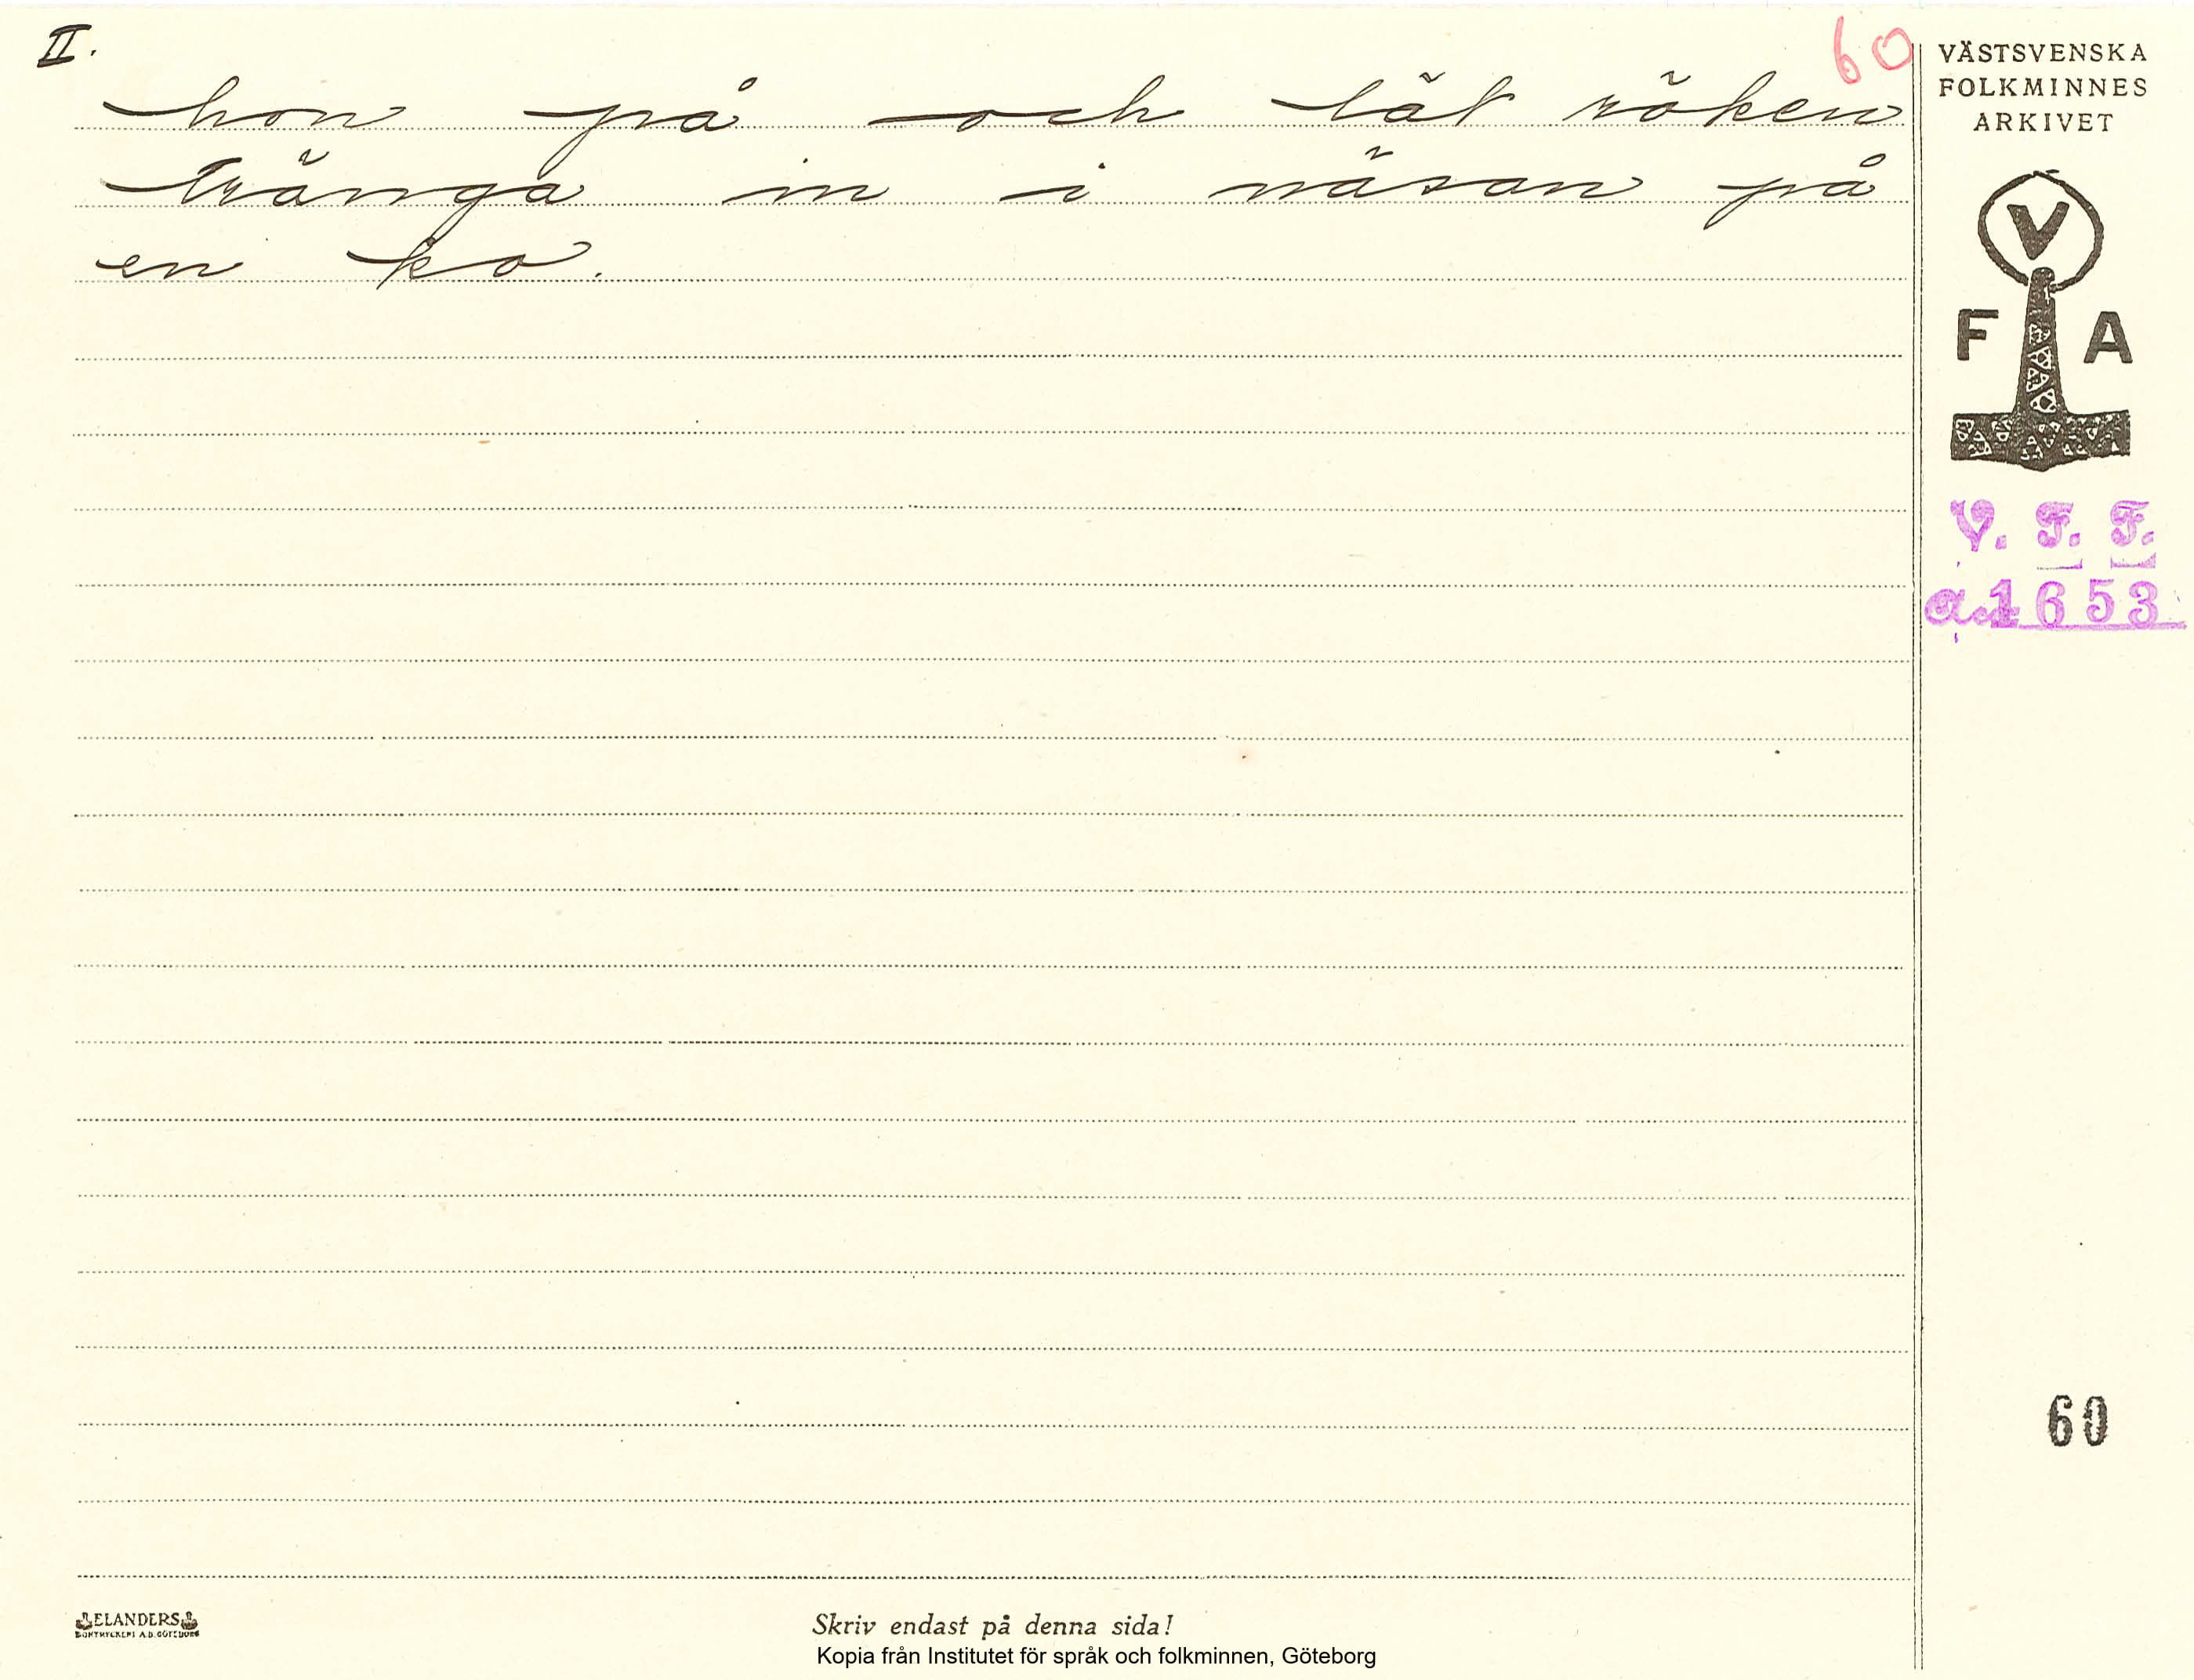 II.
60
hon på och lät röken
tränga in i näsan på
en ko.
VÄSTSVENSKA
FOLKMINNES
ARKIVET
V
F A
V. F. F.
Acc 1653
60
ELANDERS
BOKTRYCKERI A.B. GÖTEBORG
Skriv endast på denna sida!
Kopia från Institutet för språk och folkminnen, Göteborg